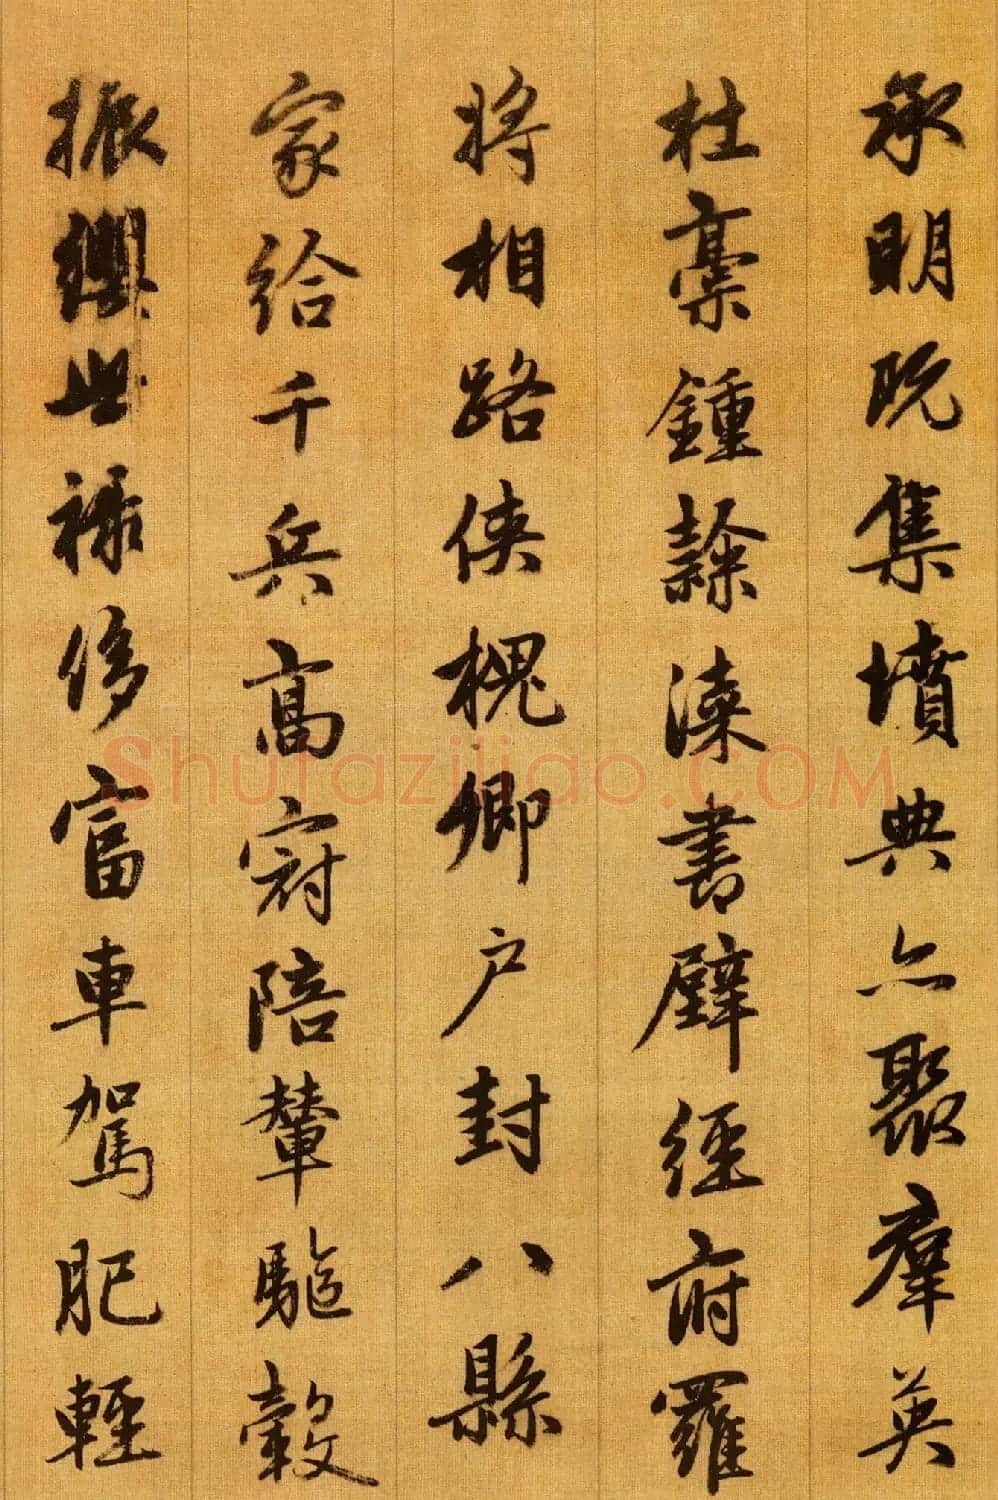 承明既集墳典亦聚羣英
杜藁鍾隸漆書壁經府羅
將相路俠槐卿户封八縣
家給千兵髙冠陪輦驅轂
振纓世祿侈富車駕肥輕
Shufaziliao.COM